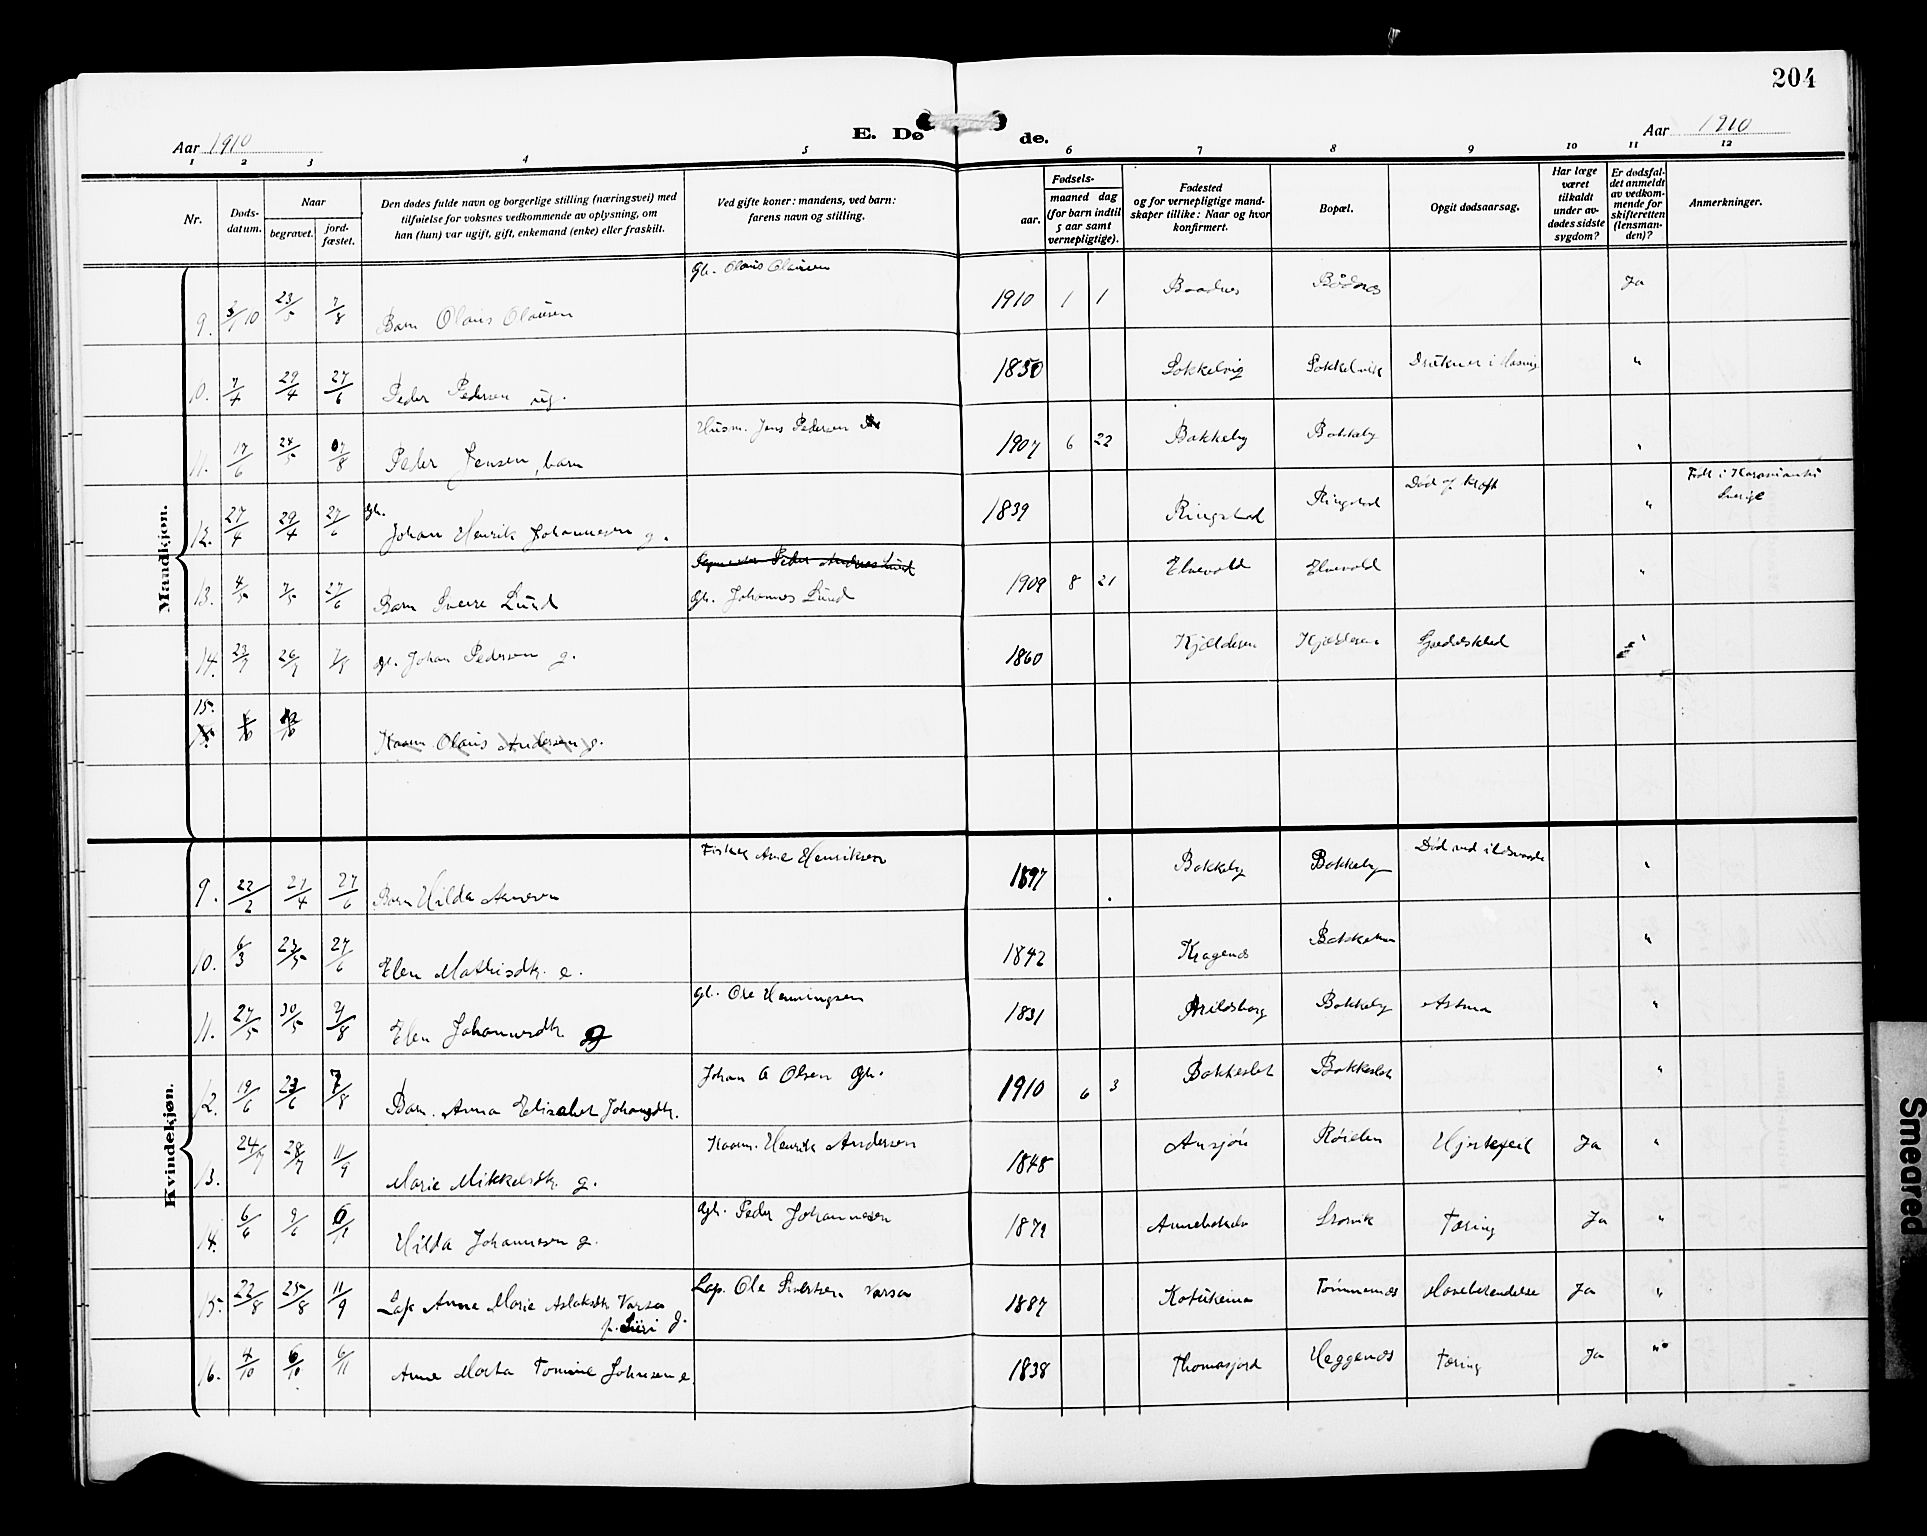 204
Aar 1910
E. Dø
de.
Aar 1910
1 2 3 4 5 6 7 8 9 10 11 12
Nr.
Døds-
datum.
Naar
begravet.
jord-
fæstet.
Den dødes fulde navn og borgerlige stilling (næringsvei) med
tilføielse for voksnes vedkommende av oplysning, om
han (hun) var ugift, gift, enkemand (enke) eller fraskilt.
Ved gifte koner: mandens, ved barn:
farens navn og stilling.
Fødsels-
aar.
maaned dag
(for barn indtil
5 aar samt
vernepligtige).
Fødested
og for vernepligtige mand-
skaper tillike: Naar og hvor
konfirmert.
Bopæl.
Opgit dødsaarsag.
Har læge
været
tilkaldt
under av-
dødes sidste
sygdom?
Er dødsfal-
det anmeldt
av vedkom-
mende for
skifteretten
(lensman-
den)?
Anmerkninger.
Mandkjøn.
9. 23/5 7/8 Barn Olaus Olausen Gb. Olaus Olausen 1910 1 1 Baadnes Bødnes Ja
10. 7/4 29/4 27/6 Peder Pedersen ug. 1850 Sokkelvig Sokkelvik "
11. 17/6 Peder Jensen, barn Husm. Jens Pedersen 1907 6 22 Bakkeby Bakkeby "
12. 27/4 29/4 27/6 Gb. Johan Henrik Johannesen g. 1839 Ringstad Ringstad Død af kræft " Født i Karesuando
Sverige
13. 4/5 7/5 27/6 Barn Sverre Lund Gb. Johannes Lund 1909 8 21 Elvevold Elvevold "
14. 23/7 26/7 Gb. Johan Pedersen g. 1860 Kjælderen Kjælderen "
15. Kaarm. Olaus Andersen g.
Kvindekjøn.
9. 22/2 27/4 27/6 Barn Hilda Arnesen Fisker Arne Henriksen 1897 Bakkeby Bakkeby Død ved ildsvaade "
10. 6/3 23/5 27/6 Elen Mathisdtr. e. 1842 Kragenes "
11. 27/5 30/5 Elen Johannesdtr. g Gb. Ole Henningsen 1831 Bakkeby Astma "
12. 19/6 23/6 7/8 Barn. Anna Elisabet Johansdtr. Johan A Olsen Gb. 1910 6 3 Bakkeslet Bakkeslet "
13. 24/7 28/7 11/9 Marie Mikkelsdtr. g. Kaarm. Henrik Andersen 1848 Ansjøn Røielen Hjertefeil Ja "
14. 6/6 9/6 Hilda Johannesen g. Gb. Peder Johannesen 1872 Storvik Tæring Ja "
15. 22/8 25/8 11/9 Lap Anne Marie Aslaksdtr. Varsa
f. Siiri g. Lap. Ole Sivertsen Varsa 1887 Kautokeino Tømmernes Mavebetændelse Ja "
16. 4/10 6/10 6/11 Anne Marta Tomine Johnsen e. 1838 Thomasjord Heggenes Tæring Ja "
Smeared